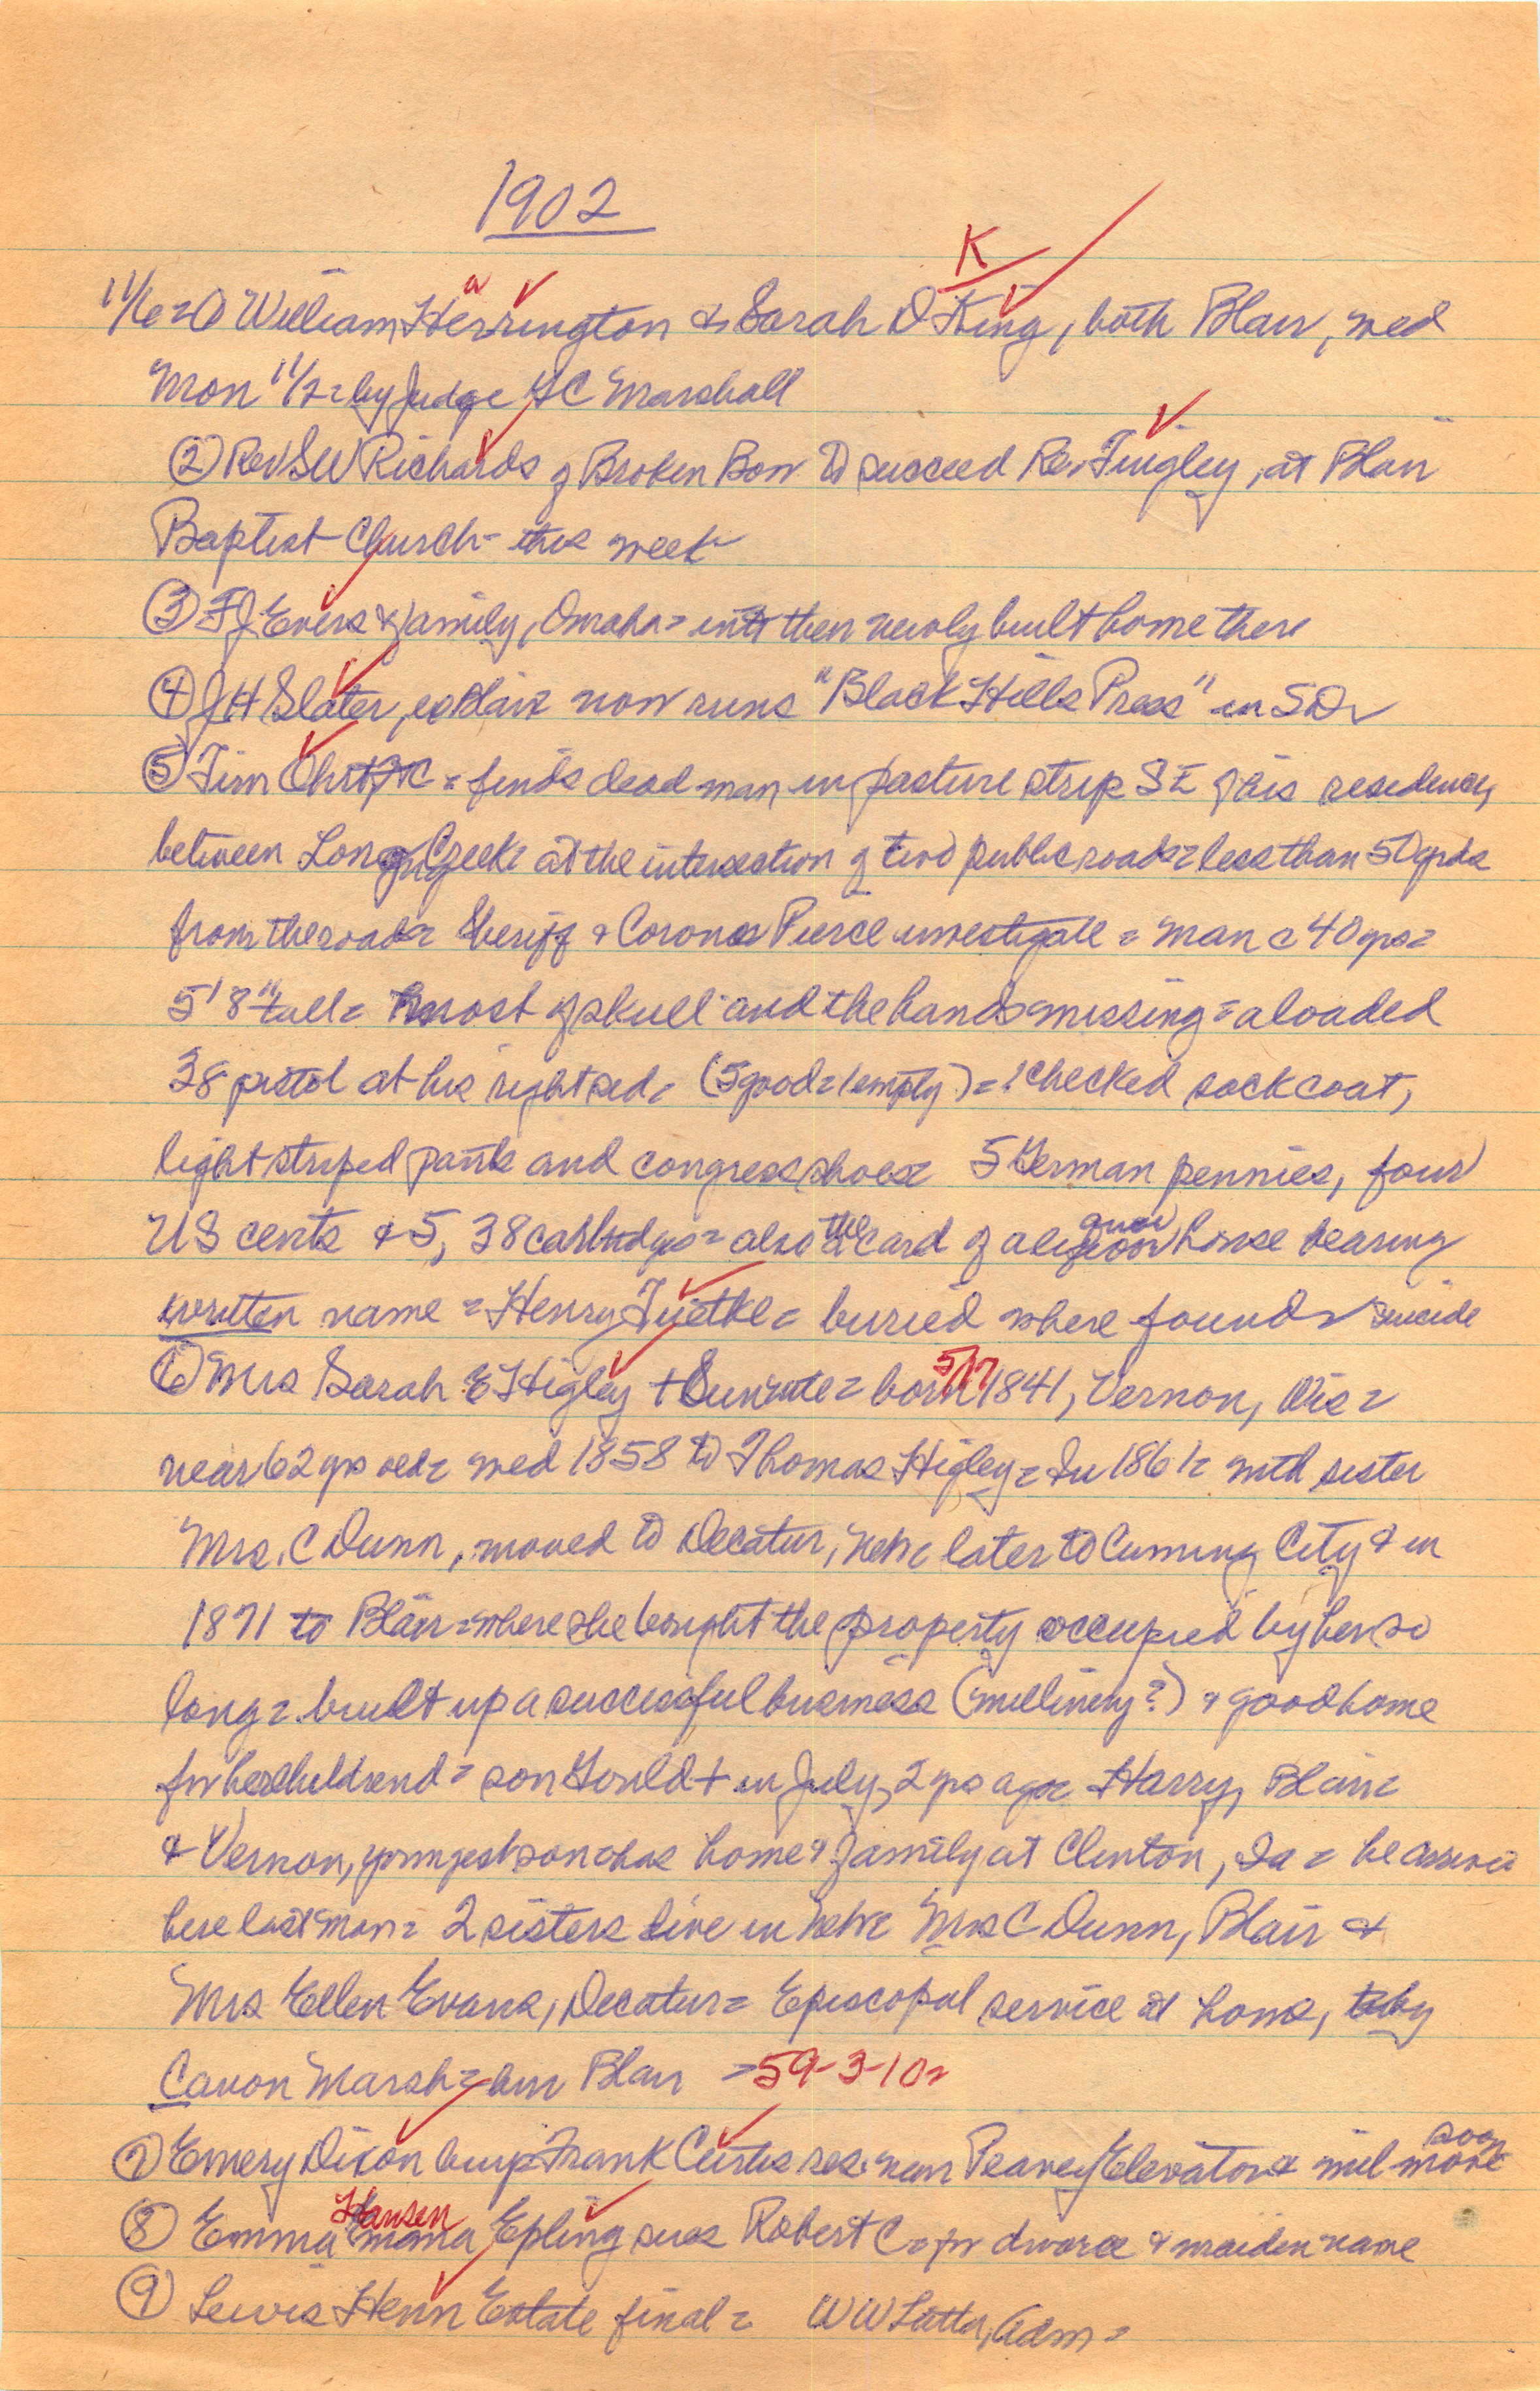 1902
11/6 = ① William Herrington & Sarah D King, both Blair, wed
Mon 11/3 = by Judge HC Marshall
② Rev SW Richards of Broken Bow to succeed Rev Tingley, at Blair
Baptist Church - this week
③ FJ Evers & family, Omaha = into their newly built home there
④ JH Slater, ex Blair now runs "Black Hills Press" in SD
⑤ Tim = finds dead man in pasture strip SE of his residence,
between Long Creek at the intersection of two public roads = less than 50 yrds
from the road = Sheriff & Coroner Pierce investigate = man c 40 yrs =
5' 8" tall = most of skull and the hands missing = a loaded
38 pistol at his right side = (5 good = 1 empty) = checked sack coat,
light striped pants and congress shoes = 5 German pennies, four
US cents & 5, 38 cartridges = also the card of a liquor house bearing
written name = Henry Tuetke = buried where found suicide
⑥ Mrs Sarah E Higley + Sun = born 5/17 1841, Vernon, Wis =
near 62 yrs old = wed 1858 to Thomas Higley = In 1861 = with sister
Mrs. C Dunn, moved to Decatur, Neb = later to Cuming City & in
1871 to Blair = where she bought the property occupied by her so
long = built up a successful business (millinery?) & good home
for her children = son Gould + in July, 2 yrs ago = Harry, Blair =
& Vernon, youngest son = has home & family at Clinton, Ia = he arrived
here last Mon = 2 sisters live in Neb = Mrs C Dunn, Blair &
Mrs Ellen Evans, Decatur = Episcopal service at home, by
Canon Marsh = bur Blair = 59-3-10 =
⑦ Emery Dixon buys Frank Curtis res. near Peavey Elevator & will soon move
⑧ Emma Hansen Epling sues Robert C = for divorce & maiden name
⑨ Lewis Henn Estate final = WW Latta, Adm =